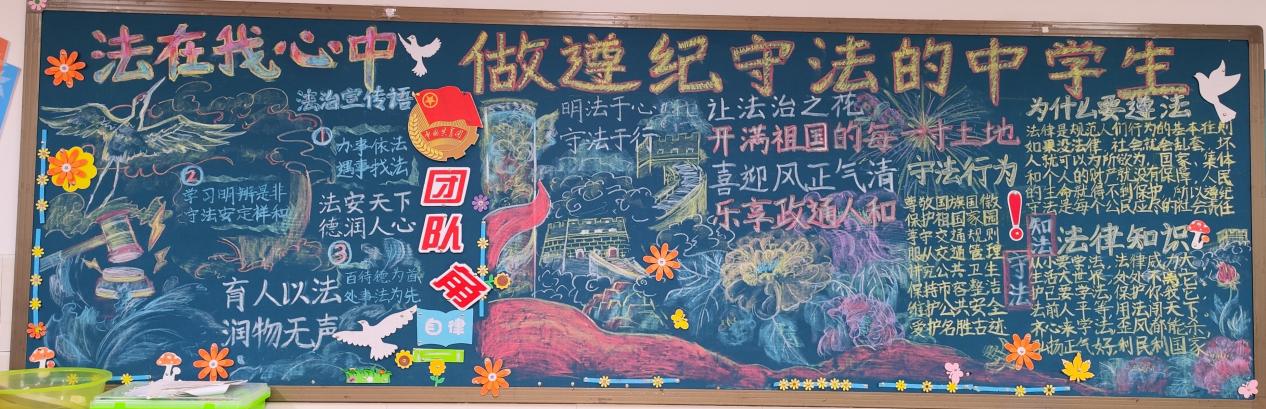 法在我心中
做遵纪守法的中学生
法治宣传语
①
办事依法
遇事找法
②
学习明辨是非
守法安定祥和
法安天下
德润人心
③
百行德为首
处事法为先
育人以法
润物无声
中国共青团
团
队
角
自律
明法于心
守法于行
让法治之花
开满祖国的每一寸土地
喜迎风正气清
乐享政通人和
守法行为
尊敬国旗国徽
保护祖国家园
遵守交通规则
服从交通管理
讲究公共卫生
保持市容整洁
维护公共安全
爱护名胜古迹
知法
守法
为什么要遵法
法律是规范人们行为的基本准则
如果没法律，社会就会乱套，坏
人就可以为所欲为，国家、集体
和个人的财产就没有保障，人民
的生命就得不到保护，所以遵纪
守法是每个公民应尽的社会责任
法律知识
从小要学法，法律威力大
生活大世界，处处不离它
护己要学法，保护你我它
法前人平等，用法闯天下
齐心来学法，歪风都能杀
弘扬正气好，利民利国家